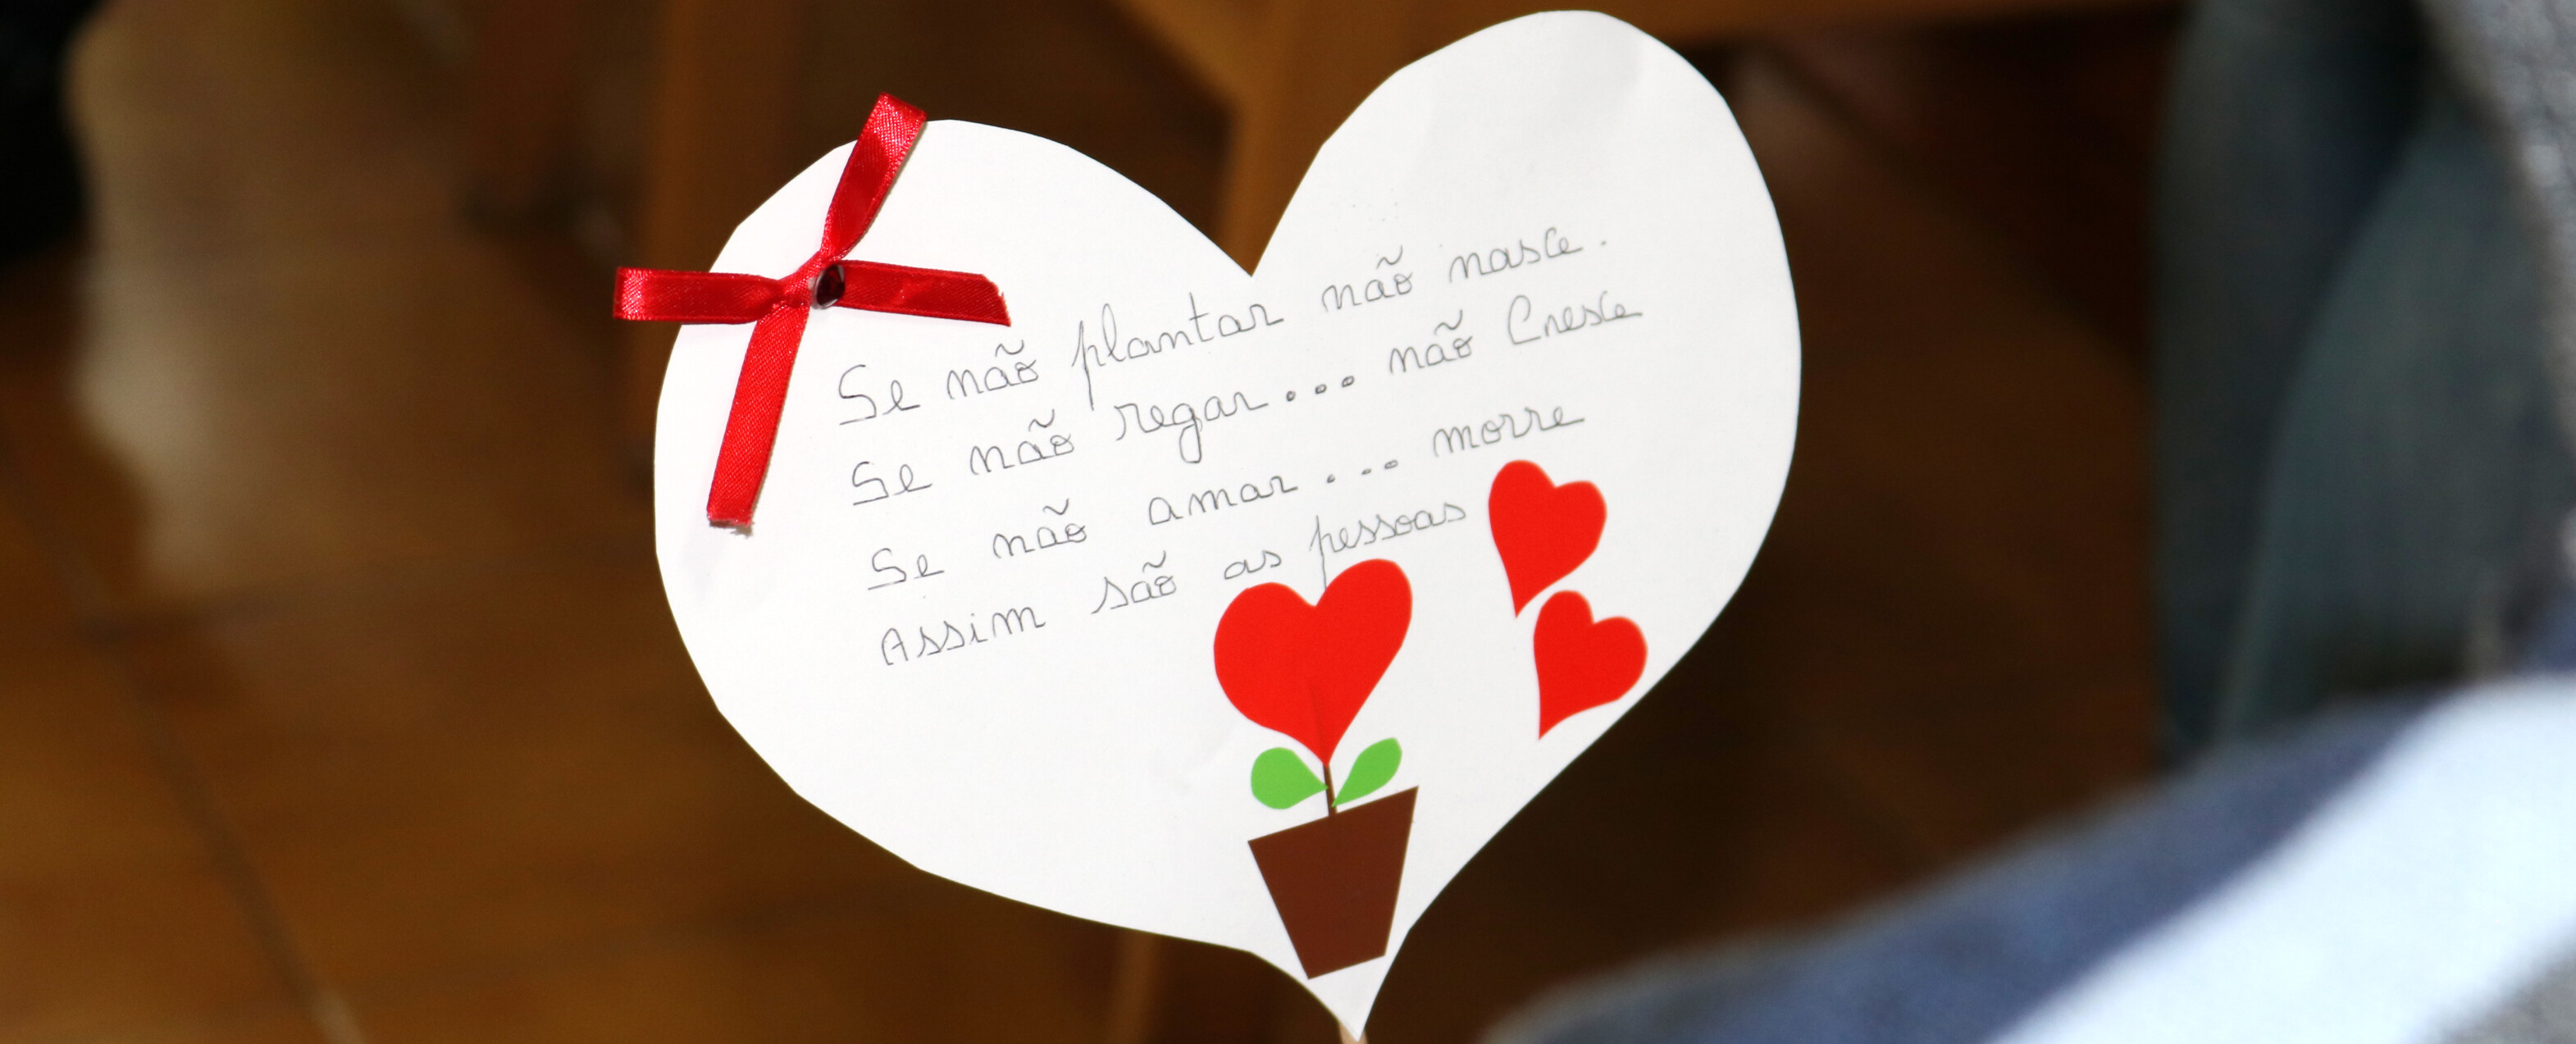 Se não plantar não nasce.
Se não regar... não Cresce
Se não amar... morre
Assim são as pessoas